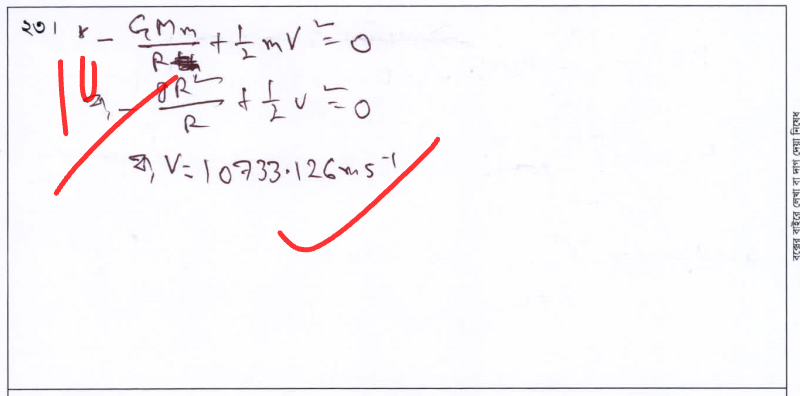 ২৩। * - GMm/R + 1/2 mV² = 0
10
বা, - gR²/R + 1/2 v² = 0
বা, V = 10733.126 ms⁻¹
বক্সের বাইরে লেখা বা দাগ দেয়া নিষেধ